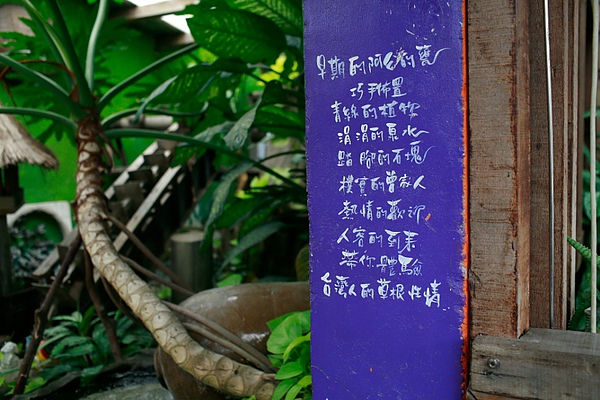 早期的阿公的甕
巧手佈置
青綠的植物
涓涓的泉水
踏腳的石塊
樸實的曾家人
熱情的歡迎
人客的到來
帶你體驗
台灣人的草根性情